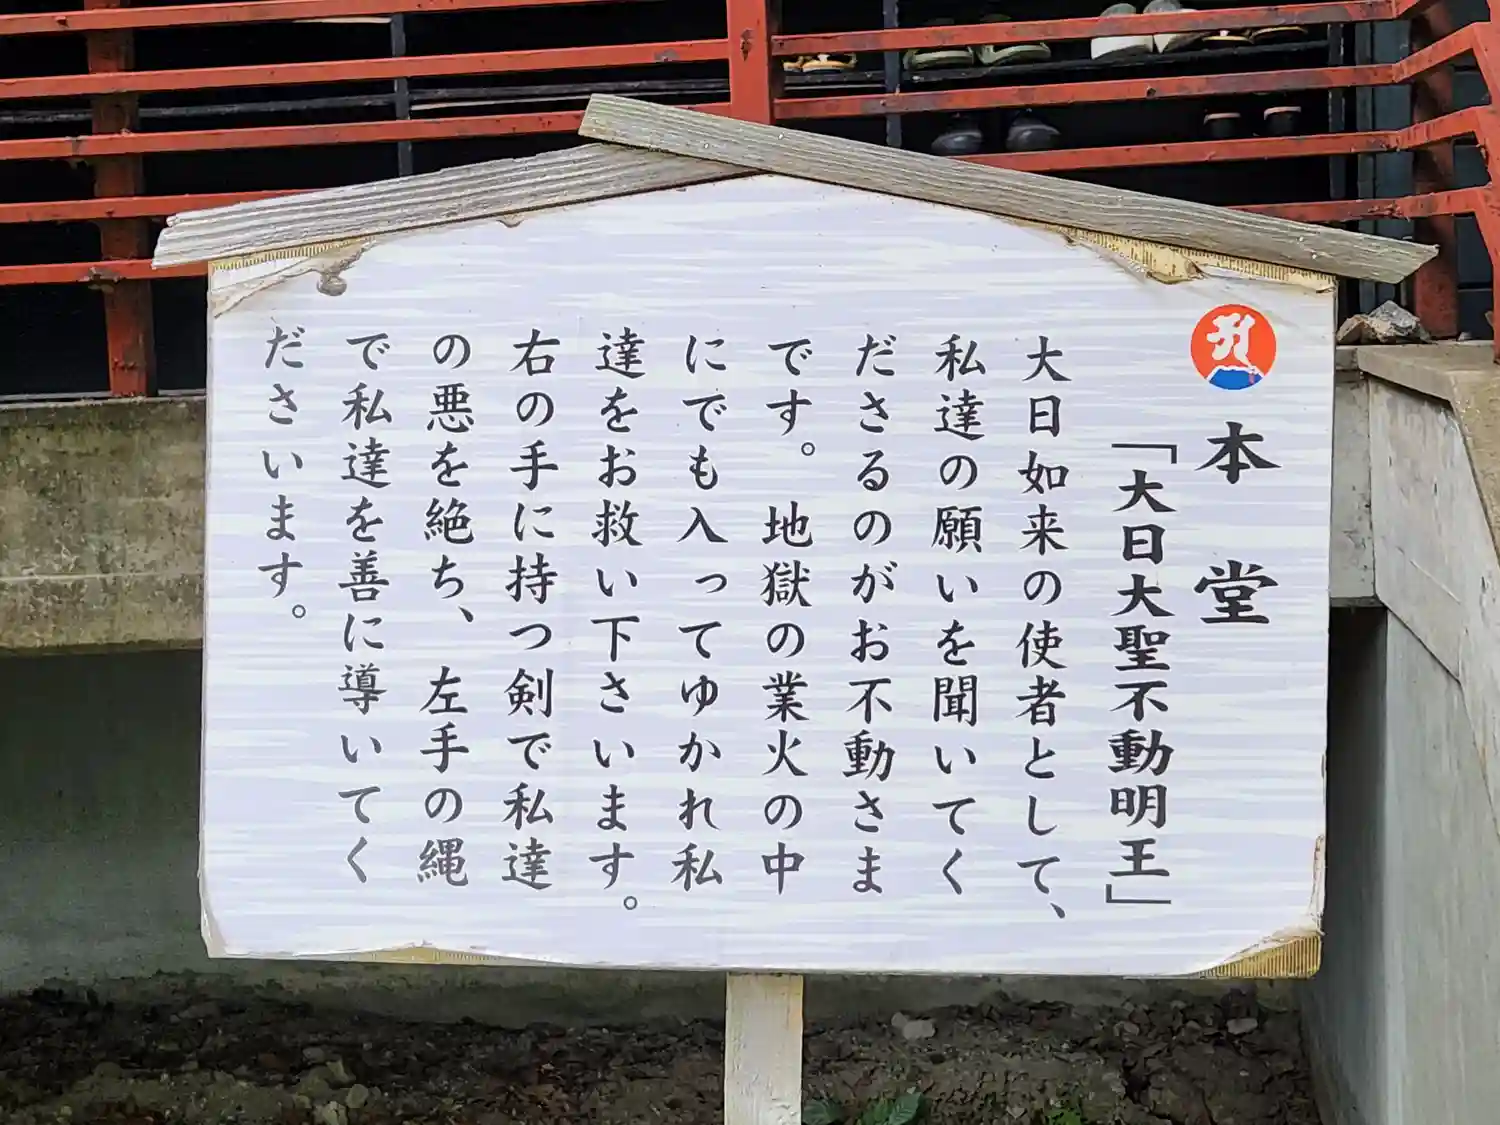 本堂
「大日大聖不動明王」
大日如来の使者として、
私達の願いを聞いてく
ださるのがお不動さま
です。地獄の業火の中
にでも入ってゆかれ私
達をお救い下さいます。
右の手に持つ剣で私達
の悪を絶ち、左手の縄
で私達を善に導いてく
ださいます。